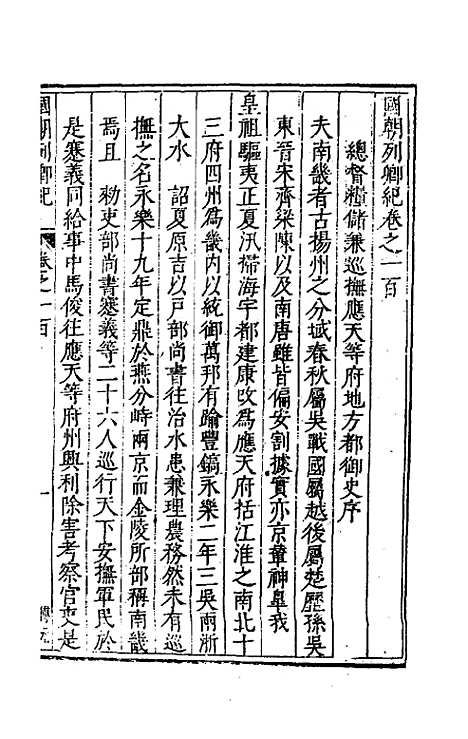 國朝列卿紀卷之一百
總督糧儲兼巡撫應天等府地方都御史序
夫南畿者古揚州之分域春秋屬吳戰國屬越後屬楚歷孫吳
東晉宋齊梁陳以及南唐雖皆偏安割據實亦京輦神臯我
皇祖驅夷正夏汛掃海宇都建康改為應天府括江淮之南北十
三府四州為畿內以統御萬邦有踰豐鎬永樂二年三吳兩浙
大水 詔夏原吉以戶部尚書往治水患兼理農務然未有巡
撫之名永樂十九年定鼎於燕分峙兩京而金陵所部稱南畿
焉且 勑吏部尚書蹇義等二十六人巡行天下安撫軍民於
是蹇義同給事中馬俊往應天等府州興利除害考察官吏是
國朝列卿紀 卷之一百 一